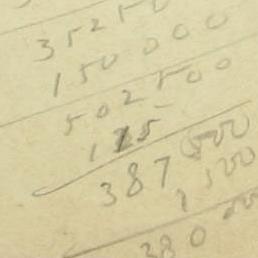 35250
150000
502500
115
387500
1500
380